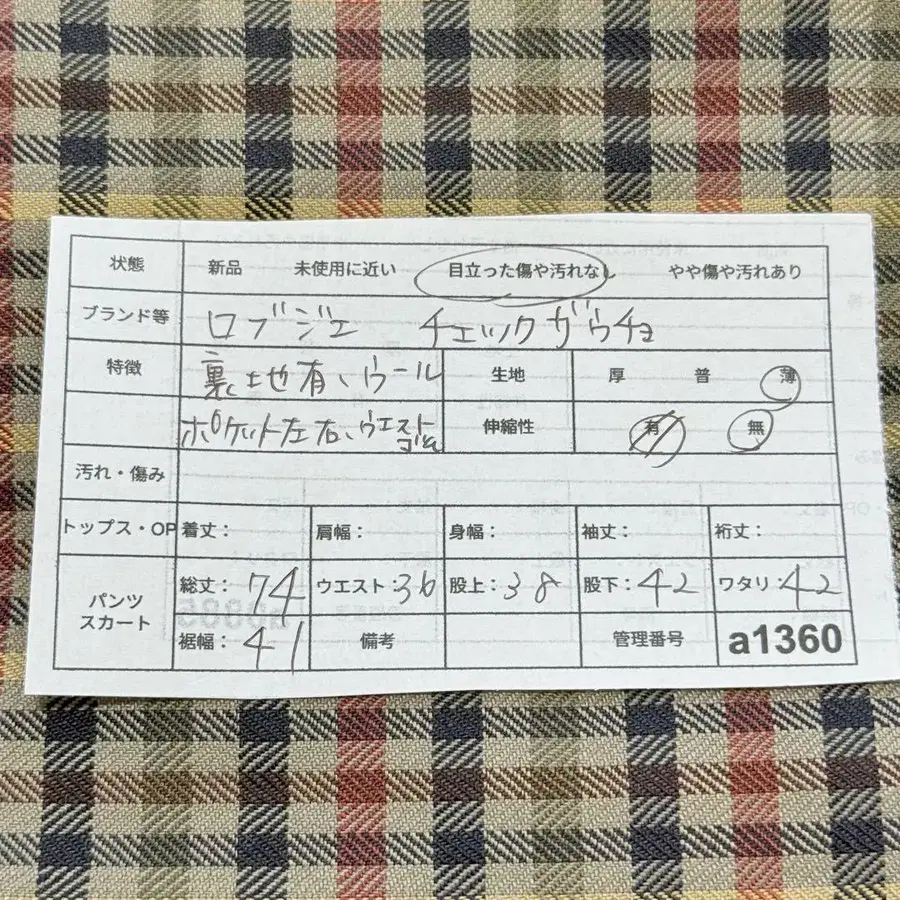 状態 新品 未使用に近い 目立った傷や汚れなし やや傷や汚れあり
ブランド等 ロブジェ チェックガウチョ
特徴 裏地有、ウール 生地 厚 普 薄
ポケット左右、ウエスト 伸縮性 有 無
汚れ・傷み
トップス・OP 着丈: 肩幅: 身幅: 袖丈: 裄丈:
パンツ スカート 総丈:74 ウエスト:36 股上:38 股下:42 ワタリ:42
裾幅:41 備考 管理番号 a1360